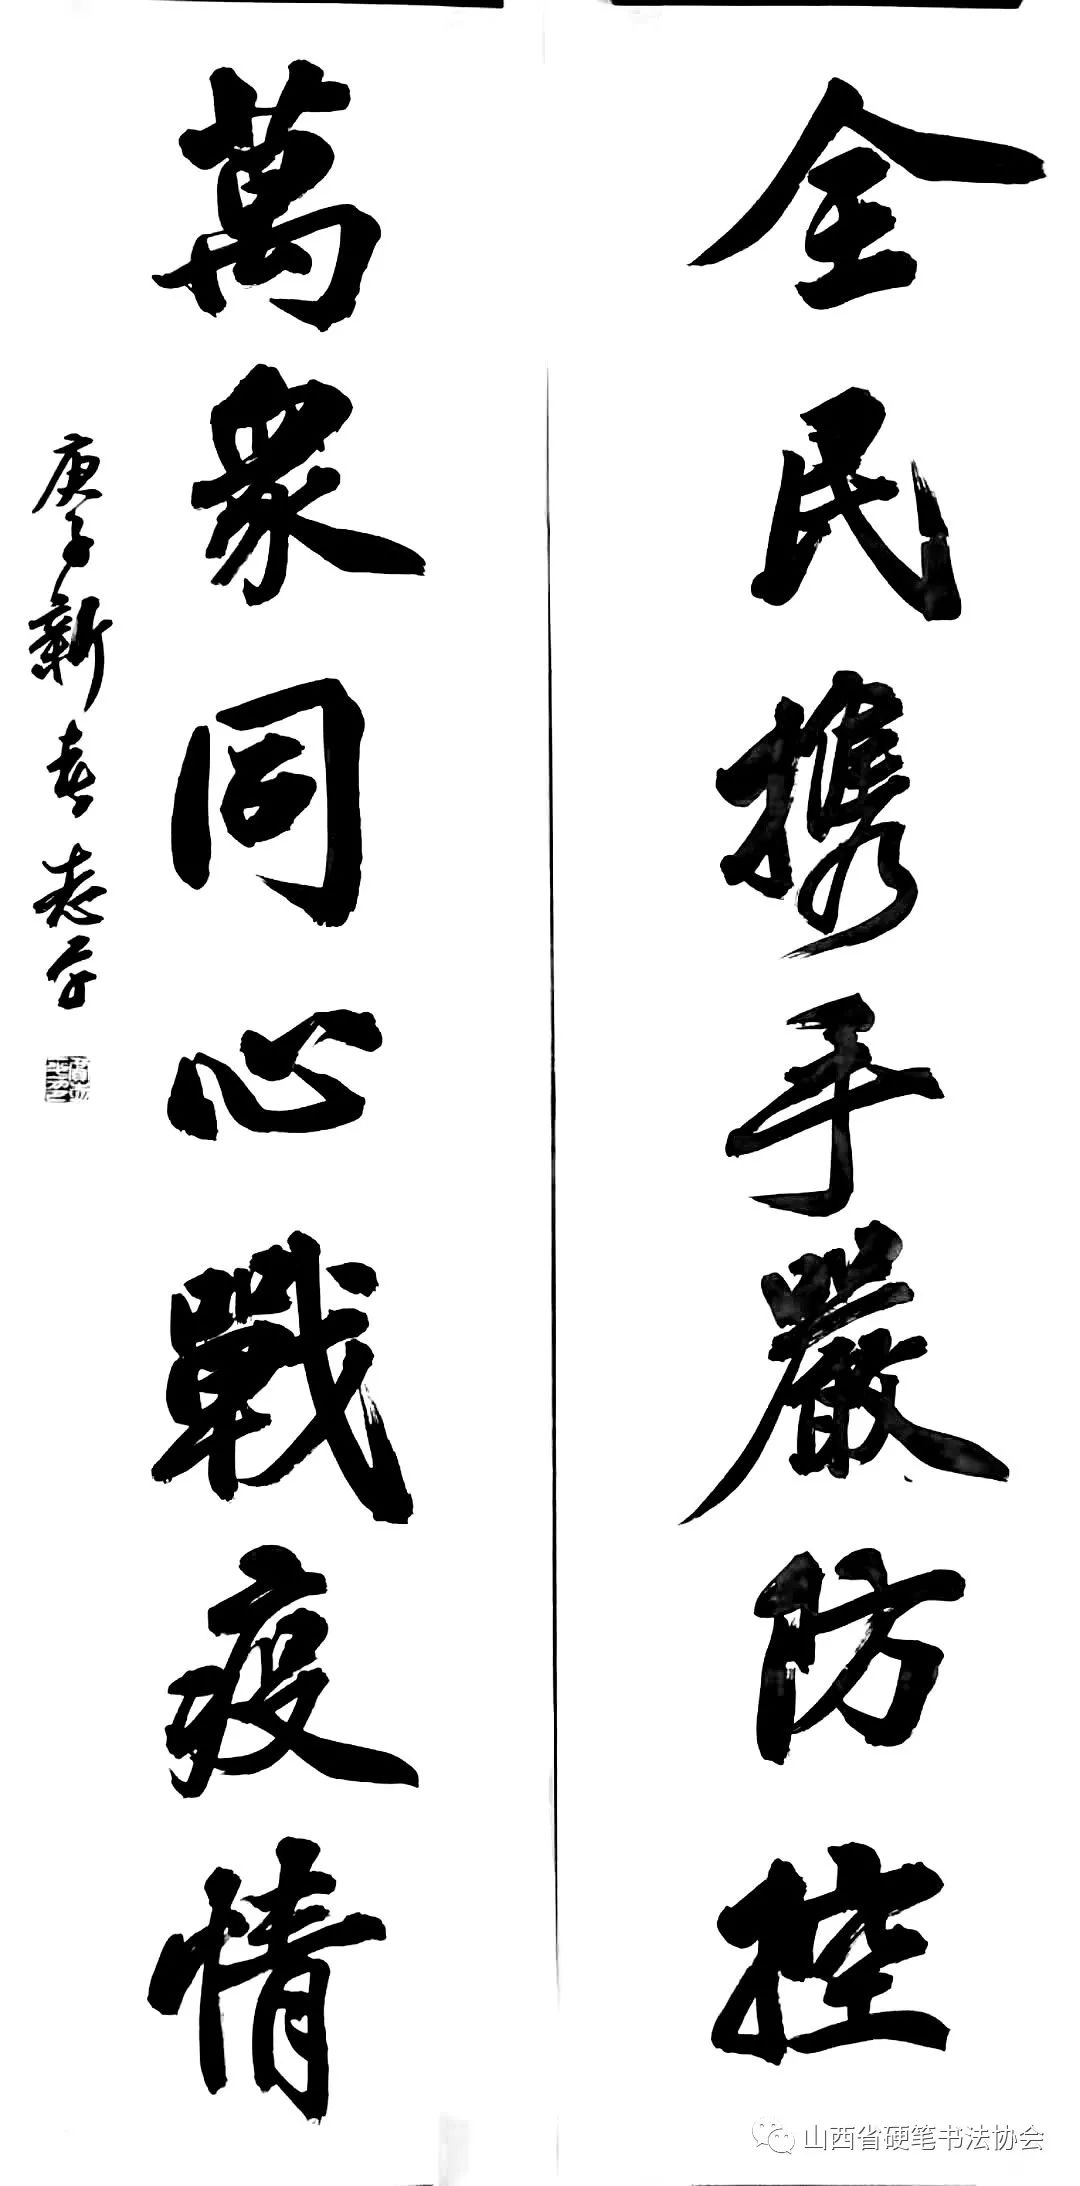 全民携手嚴防控
萬衆同心戰疫情
庚子新春志平
山西省硬笔书法协会